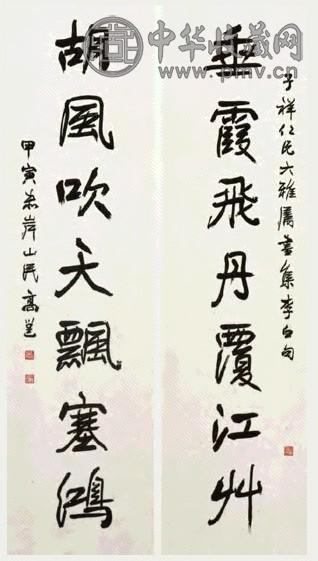 中华收藏网
www.pmv.cn
子祥仁兄大雅屬書集李白句
霞飛丹覆江艸
胡風吹天飄塞鴻
甲寅 山民高邕